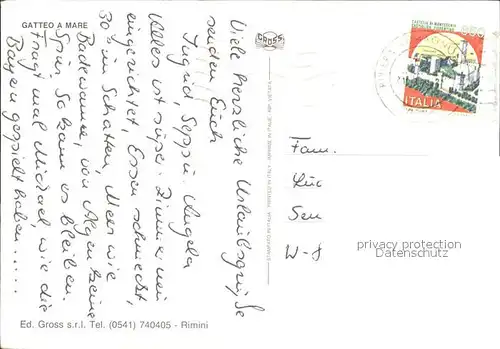 GATTEO A MARE
Viele herzliche Urlaubsgrüße
senden Euch
Ingrid, Seppi u. Angela
Alles ist super. Zimmer neu
eingerichtet, Essen schmeckt,
30° im Schatten, Meer wie
Badewanne, von Algen keine
Spur. So kann es bleiben.
Fragt mal Michael, wie die
Bayern gespielt haben......
Ed. Gross s.r.l. Tel. (0541) 740405 - Rimini
GROSS
850
ITALIA
Fam.
Luc
Sen
W-8
privacy protection
Datenschutz